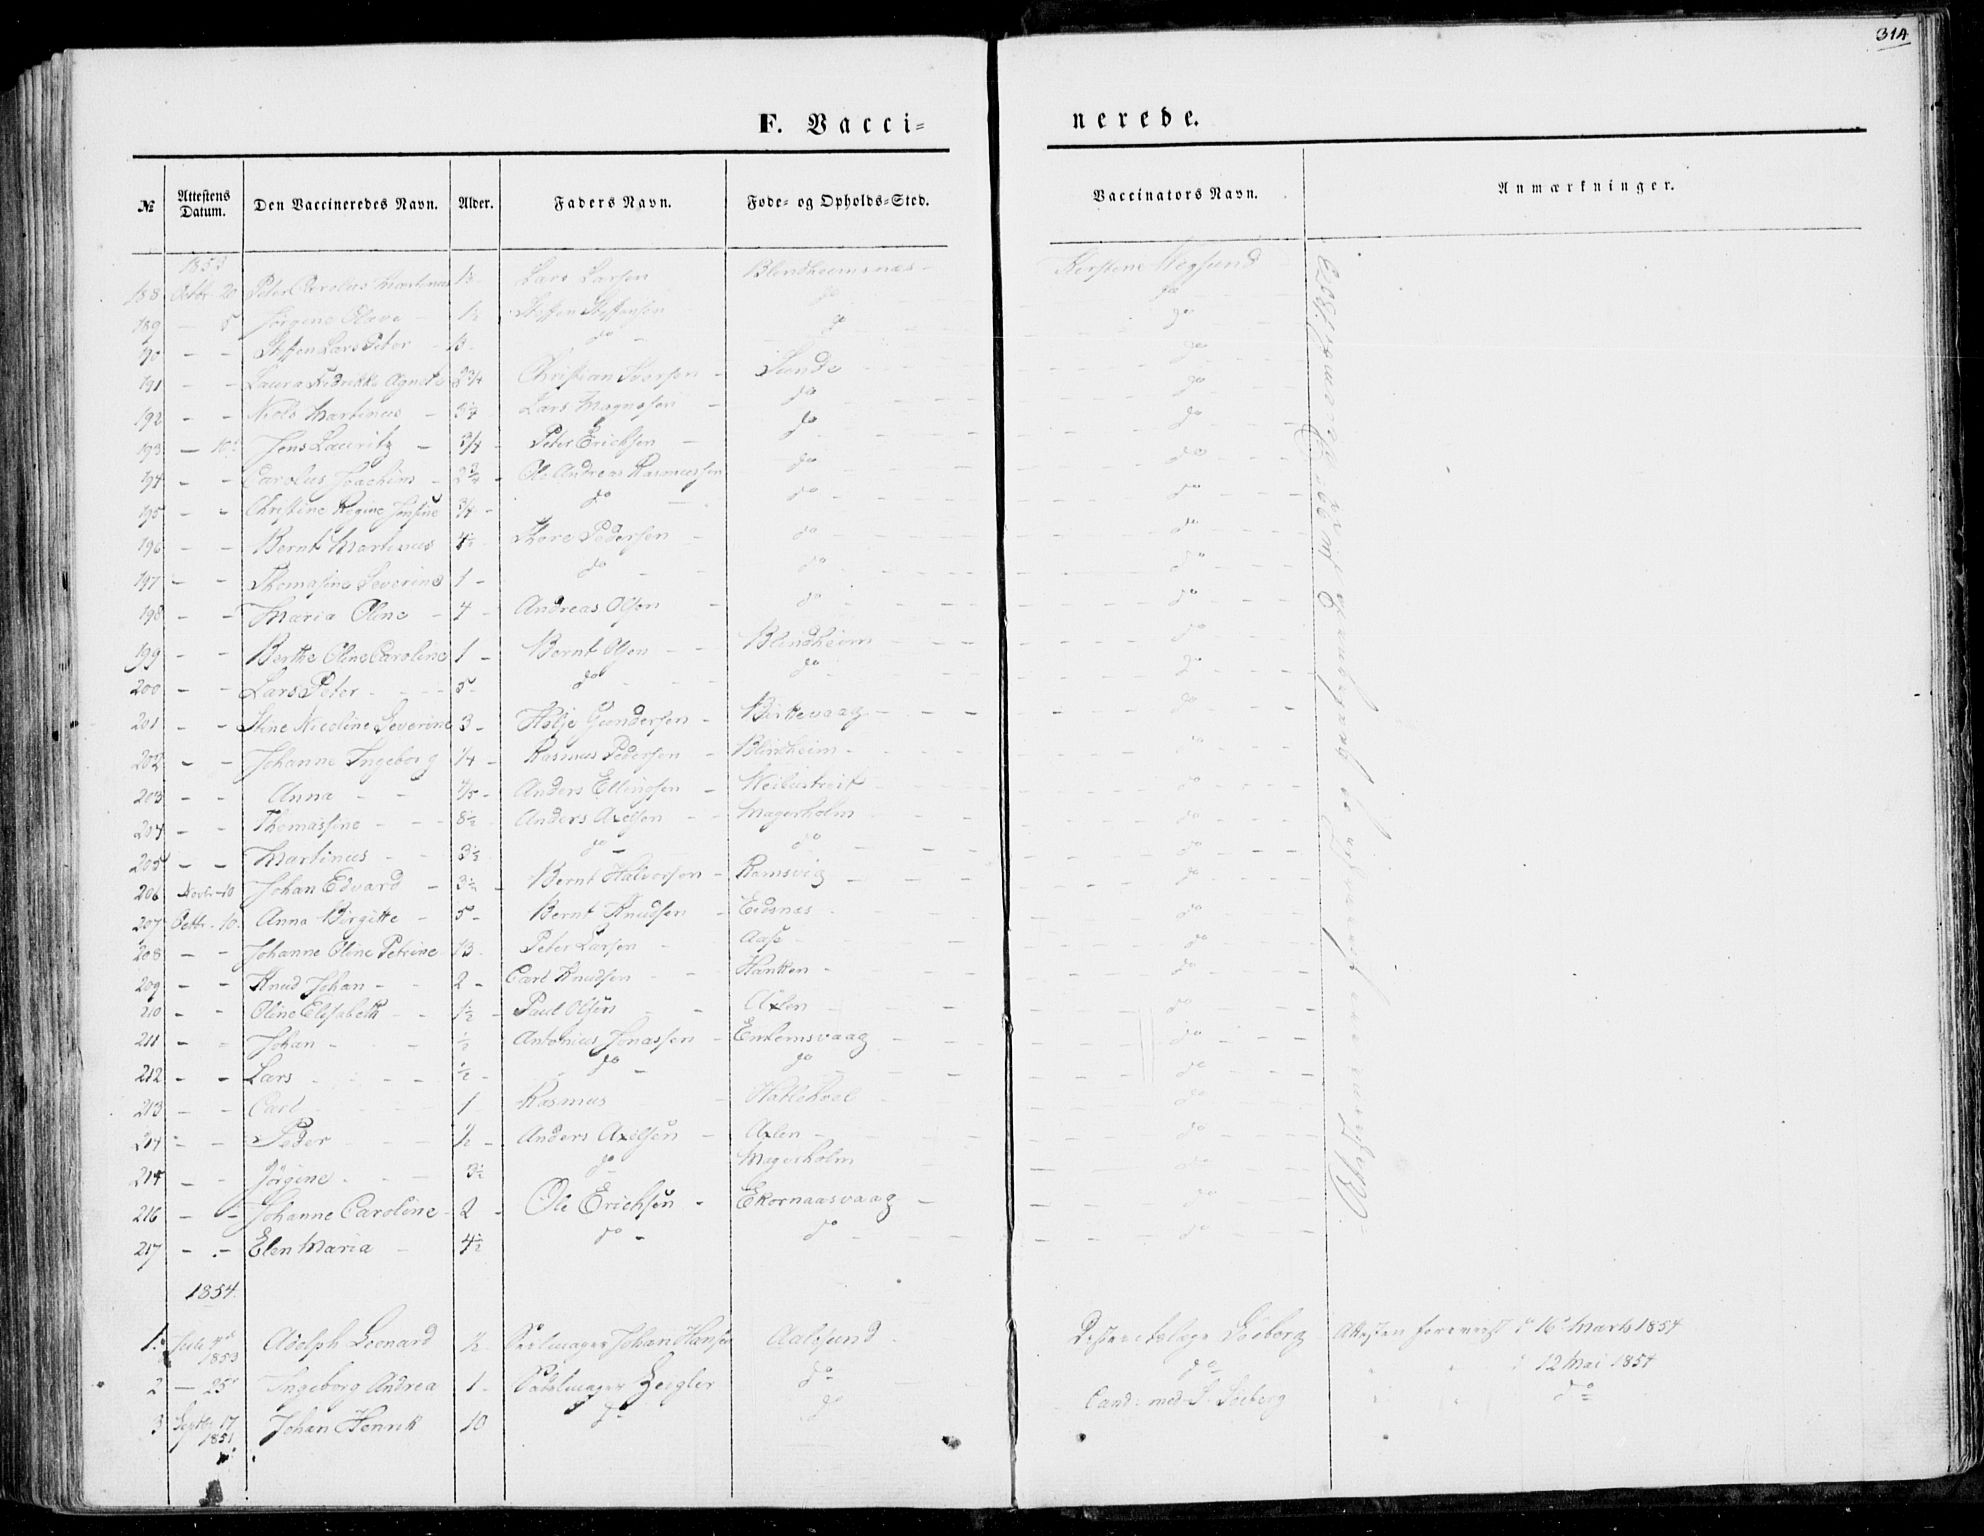 314
F. Vacci= nerede.
№ Attestens Datum. Den Vaccineredes Navn. Alder. Faders Navn. Føde= og Opholds=Sted. Vaccinators Navn. Anmærkninger.
1853
188 Octbr 20 Peter Carolus Martinus 1½ Lars Larsen Blindheimsnæs Kerstene Wegsund
189 — 5 Jørgine Olave - 1½ Steffen Steffensen do do
190 - - Steffen Lars Peter - 3 - do - do do
191 - - Laura Fredrikke Agnete 2¾ Christian Iversen - Sunde do
192 - - Niels Martinus - 3½ Lars Magnesen - do do
193 — 10 Jens Lauritz - ¾ Peter Erichsen - do do
194 - - Carolus Joachim - 2¾ Ole Andreas Rasmussen do do
195 - - Christine Regine Jensine ¾ - do do do
196 - - Bernt Martinus 4½ Thore Pedersen - do do
197 - - Thomasine Severine 1 - do do do
198 - - Maria Oline - 4 - Andreas Olsen - do do
199 - - Berthe Oline Caroline 1 - Bernt Olsen - Blindheim do
200 - - Lars Peter - 5 - do do do
201 - - Stine Nicoline Severine 3 - Helje Gundersen - Birkevaag do
202 - - Johanne Ingeborg ¼ - Rasmus Pedersen - Blindheim - do
203 - - Anna - Anders Ellingsen - do
204 - - Thomassine - 8½ - Anders Axelsen - Magerholm do
205 - - Martinus - 3½ do - do do
206 Novbr - 10 Johan Edvard - 3½ - Bernt Halvorsen - Ramsvig do
207 Octbr - 10 Anna Birgitte - 5 - Bernt Knudsen - Eidsnæs do
208 - - Johanne Oline Petrine 13 Peter Larsen - Aase - do
209 - - Knud Johan - 2 - Carl Knudsen - Hanken - do
210 - - Oline Elisabeth - 1½ - Paul Olsen - Axlen - do
211 - - Johan - ½ Antonius Jonassen - Emlemsvaag do
212 - - Lars ½ - do - do do
213 - - Carl 1 Rasmus Hatlehoel do
214 - - Peder ½ - Anders Axelsen - Axlen - do
214 - - Jörgine - 3½ do Magerholm do
216 - - Johanne Caroline - 2 - Ole Erichsen - Ekornaasvaag - do
217 - - Elen Maria - 4½ do - do do
1854.
1. Juli 4 1853 Adolph Leonard ½ Johan Hansen Aalesund Districtslæge Döeberg Attesten foreviist d 16 Marts 1854
2 — 25 Ingeborg Andrea 1 - Zeigler do do " " d 12 Mai 1854
3 Septbr 17 1851 Johan Henrik 10 do do Cand: med. S. Döeberg " " do